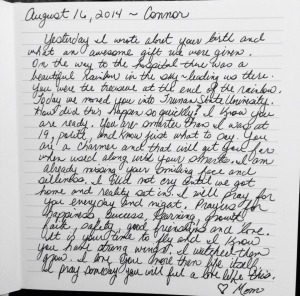 August 16, 2014 ~ Connor
Yesterday I wrote about your birth and
what an awesome gift we were given.
On the way to the hospital there was a
beautiful rainbow in the sky leading us there.
You were the treasure at the end of the rainbow.
Today we moved you into Truman State University.
How did this happen so quickly? I know you
are ready. You are smarter than I was at
19, polite, and know just what to say. You
are a charmer and that will get you far
when used along with your smarts. I am
already missing your smiling face and
silliness. I did not cry until we got
home and reality set in. I will pray for
you everyday and night. Prayers for
happiness, success, learning, growth,
faith, safety, good friendships and love.
It is your time to fly and I know
you have strong wings. I watched them
grow. I love you more than life itself.
I pray someday you will feel a love like this.
♡ Mom